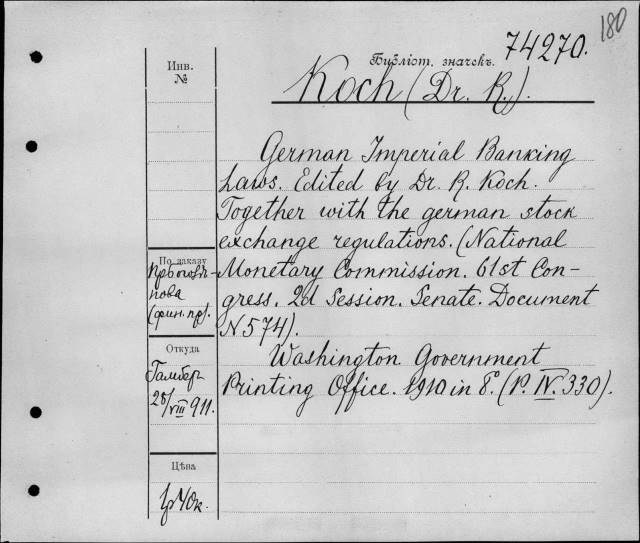 180
74270.
Библіот. значекъ.
Koch (Dr. R.).
Инв.
№
German Imperial Banking
Laws. Edited by Dr. R. Koch.
Together with the german stock
exchange regulations. (National
Monetary Commission. 61st Con-
gress. 2d Session. Senate. Document
N 574).
Washington Government
Printing Office. 1910 in 8°. (P. IV. 330).
По заказу
нова
(фин. пр).
Откуда
28/VIII 911.
Цѣна
40к.